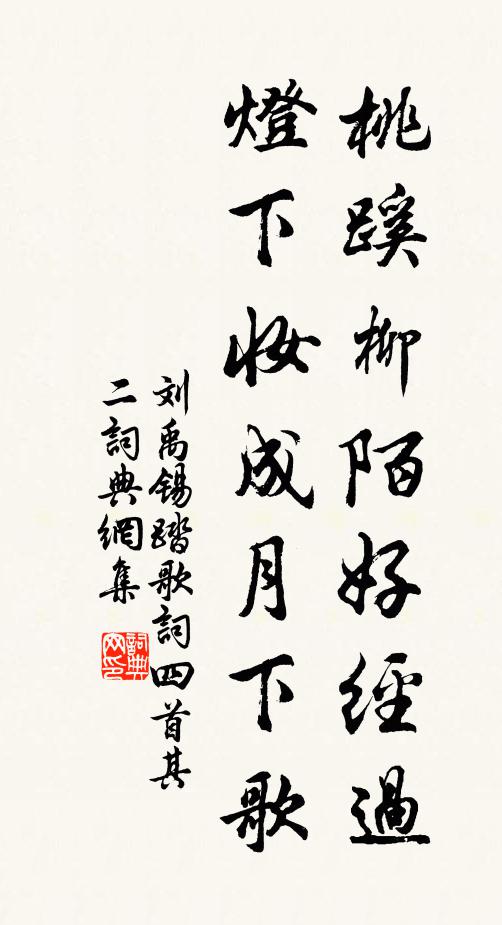 桃蹊柳陌好經過
燈下妝成月下歌
刘禹錫踏歌詞四首其
二詞典網集
詞典
网印